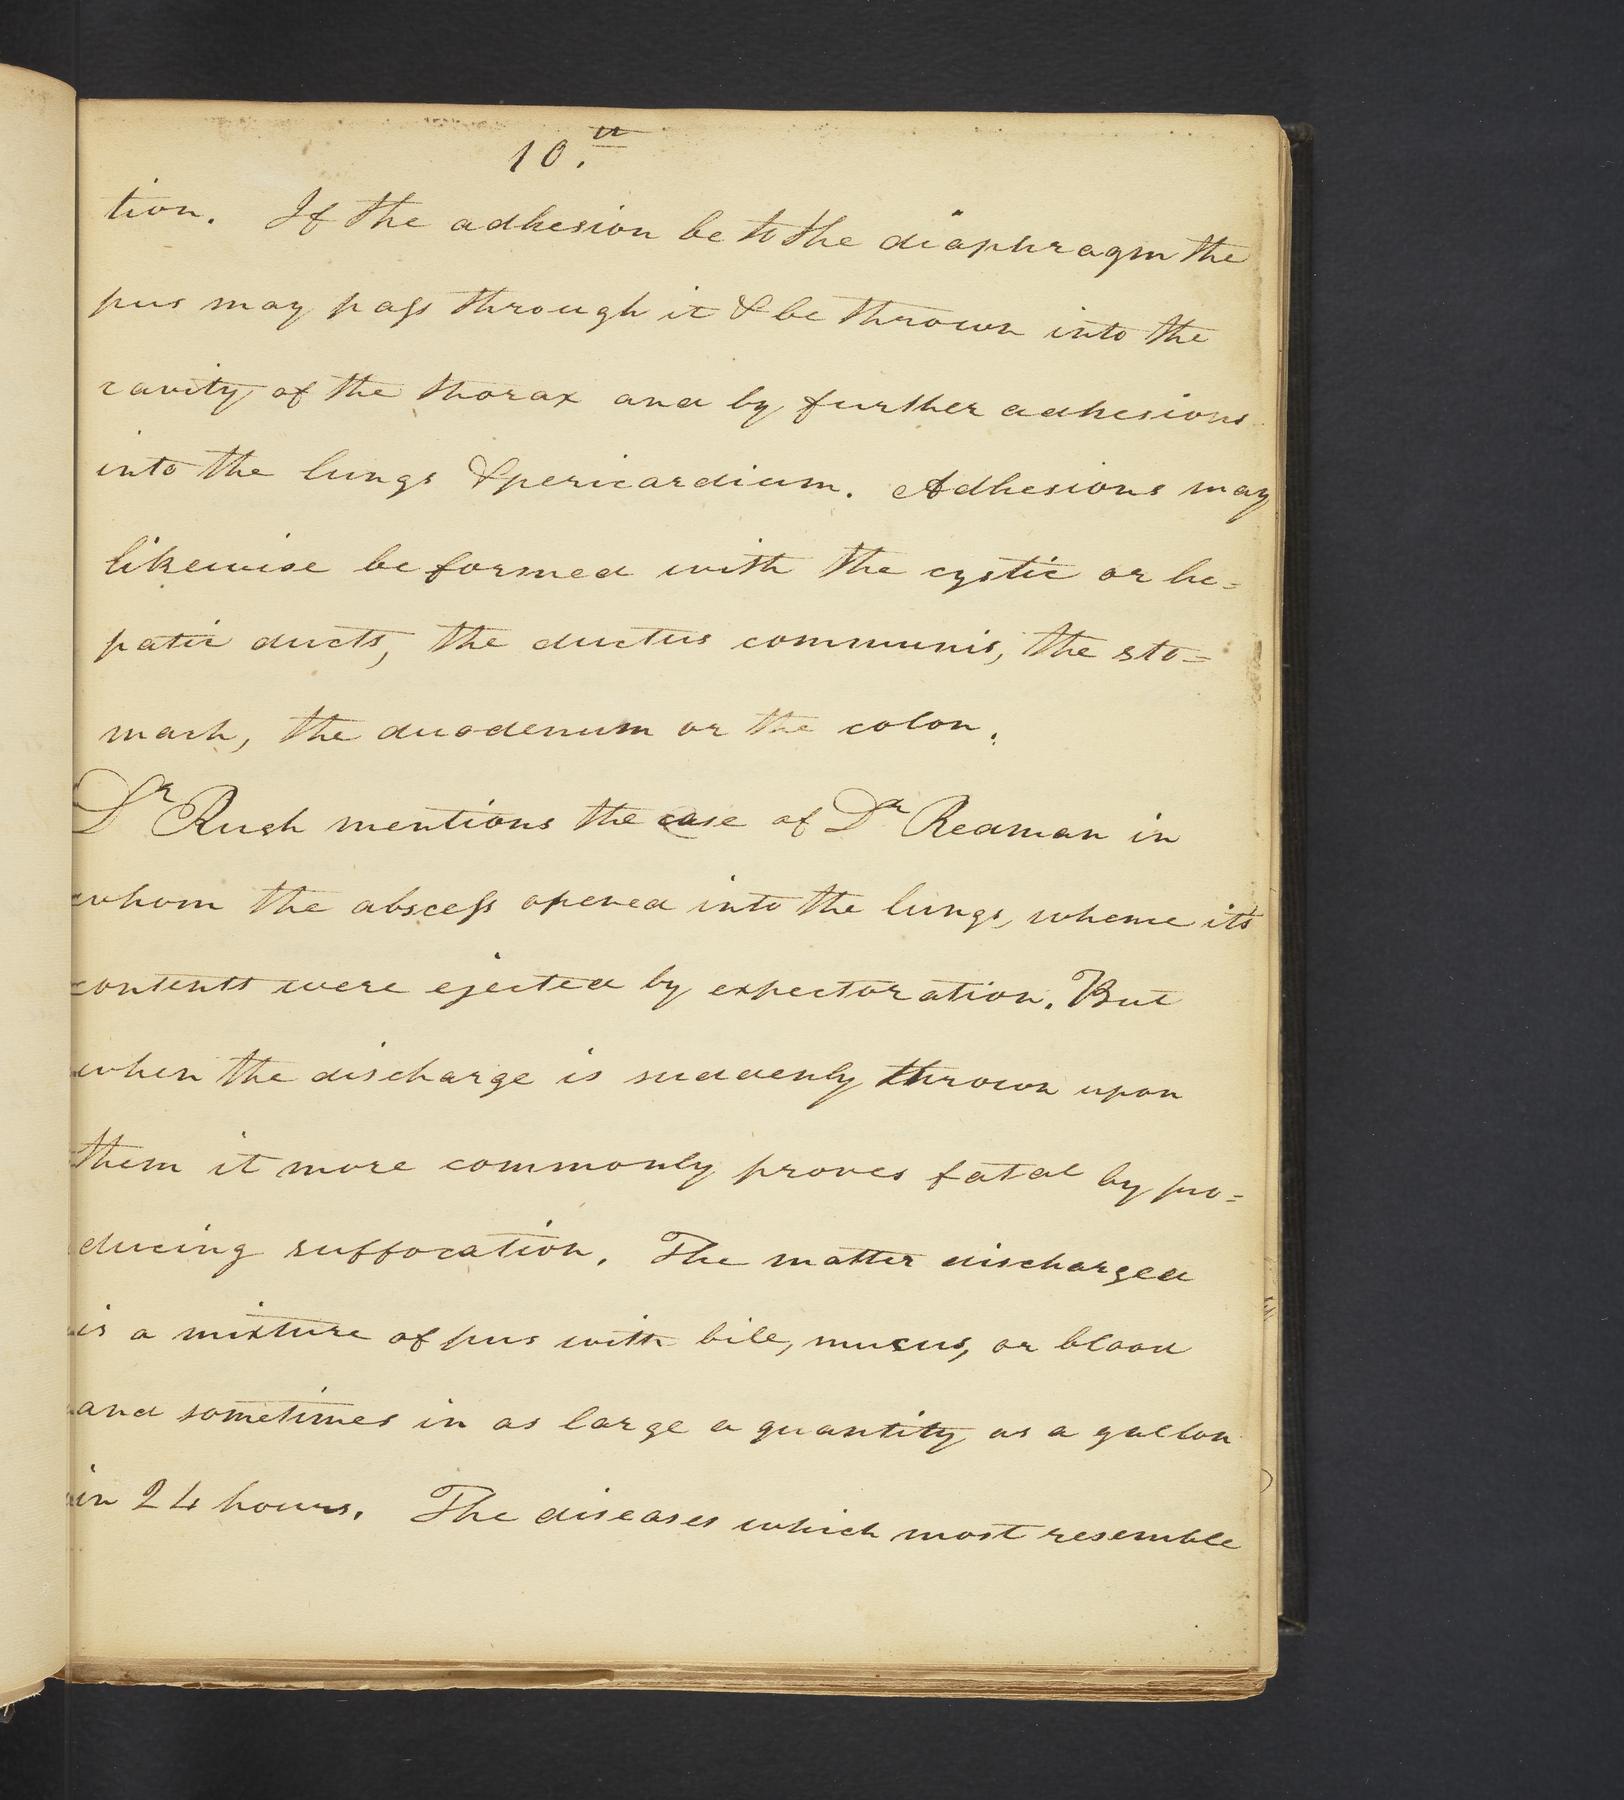 10.th
tion. If the adhesion be to the diaphragm the
pus may pass through it & be thrown into the
cavity of the thorax and by further adhesions
into the lungs & pericardium. Adhesions may
likewise be formed with the cystic or he=
patic ducts, the ductus communis, the sto=
mach, the duodenum or the colon.
Dr Rush mentions the case of Dr Reaman in
whom the abscess opened into the lungs, whence its
contents were ejected by expectoration. But
when the discharge is suddenly thrown upon
them it more commonly proves fatal by pro=
ducing suffocation. The matter discharged
is a mixture of pus with bile, mucus, or blood
and sometimes in as large a quantity as a gallon
in 24 hours. The diseases which most resemble